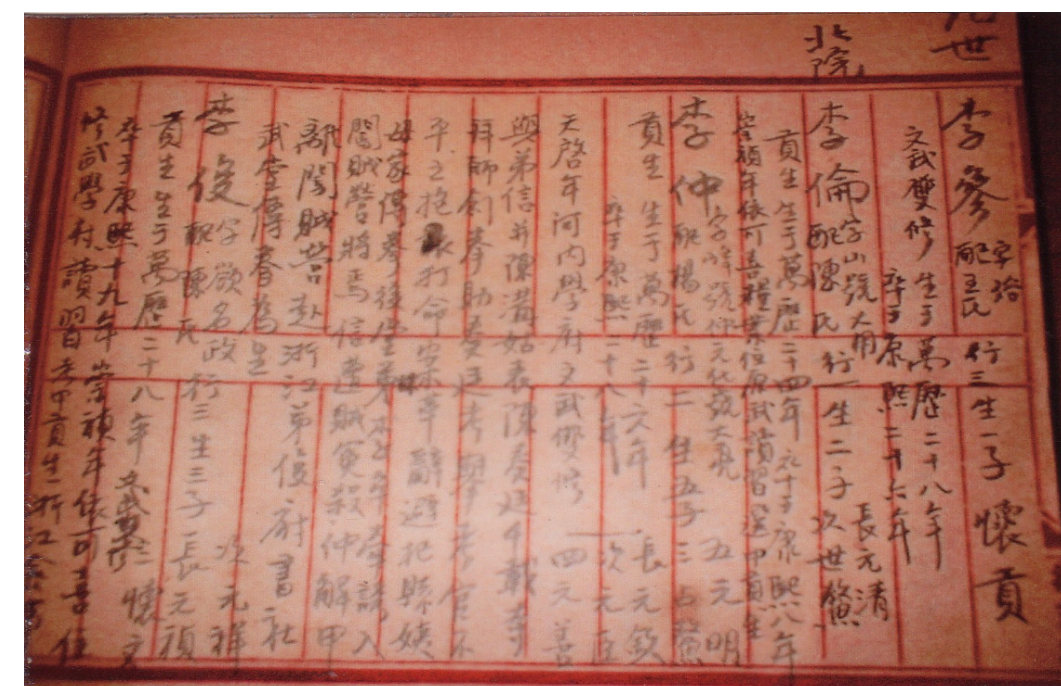 九世
北院
李參 字裕 配王氏 行三生一子 懷貢
文武雙修 生于萬歷二十八年
卒于康熙二十六年
李倫 字山號大用 配陳氏 行一生二子 長元清 次世鰲
貢生 生于萬歷二十四年 卒于康熙八年
崇禎年依可喜糧業位原武讀習選甲貢生
李仲 字峰號仲元 配楊氏 行二 生五子 三占鰲 五元明
貢生 生于萬歷二十六年 長元欽
卒于康熙二十八年 次元臣
天啓年河內學府文武雙修 四元善
與弟信并陳溝姑表陳奏廷千載寺
拜師創拳助奏廷考舉考官不
平之搶打命案革辭避杞縣姨
母家傳拳後堂弟牟卒誘入
闖賊營將焉信遭賊冤殺仲解甲
離闖賊營赴浙江弟俊府書社
武堂傳春為生
李俊 字欲名政 配陳氏 行三生三子 長元禎 次元祥
貢生 生于萬歷二十八年 三懷文
卒于康熙十九年 崇禎年依可喜任
修武學村讀習考甲貢生浙江